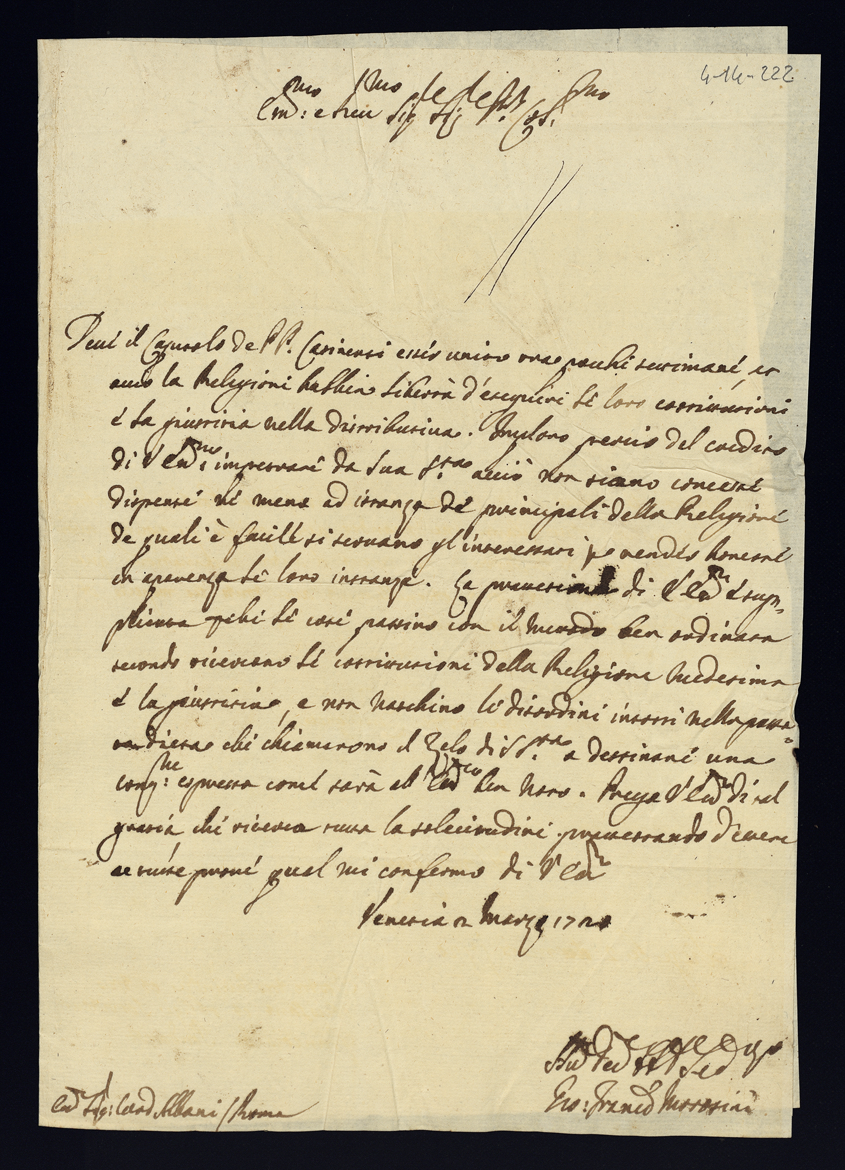 4-14-222
Em:mo e Rev:mo Sig:re Sig:re P.ne Col:mo
Deve il Capitolo de PP. Casinensi esser unito tra poche settimane, et
acciò la Religione habbia libertà d'eseguire le loro constitutioni
e la giustitia nella distributiva. Imploro perciò dal credito
di V Em:za impetrare da Sua S.tà acciò non siano concesse
dispense né meno ad istanza de principali della Religione
de quali è facile si servano gl'interessati per render honeste
in aparenza le loro instanze. La protetione di V Em:za è sup=
plicata perché le cose passino con il metodo ben ordinato
secondo ricercano le constitutioni della Religione medesima
e la giustitia, e non naschino li disordini intorsi nella passa=
ta dieta che chiamarono il Zelo di S S.tà a destinare una
cong:ne espressa come sarà all' Em:za ben noto. Prego V Em:za di tal
gratia che ricerca tutta la solecitudine protestando d'avere
qual mi confermo di V Em:za
Venetia 2 Marzo 172
Gio: Franc:o Morosini
Em:o Sig: Card Albani / Roma